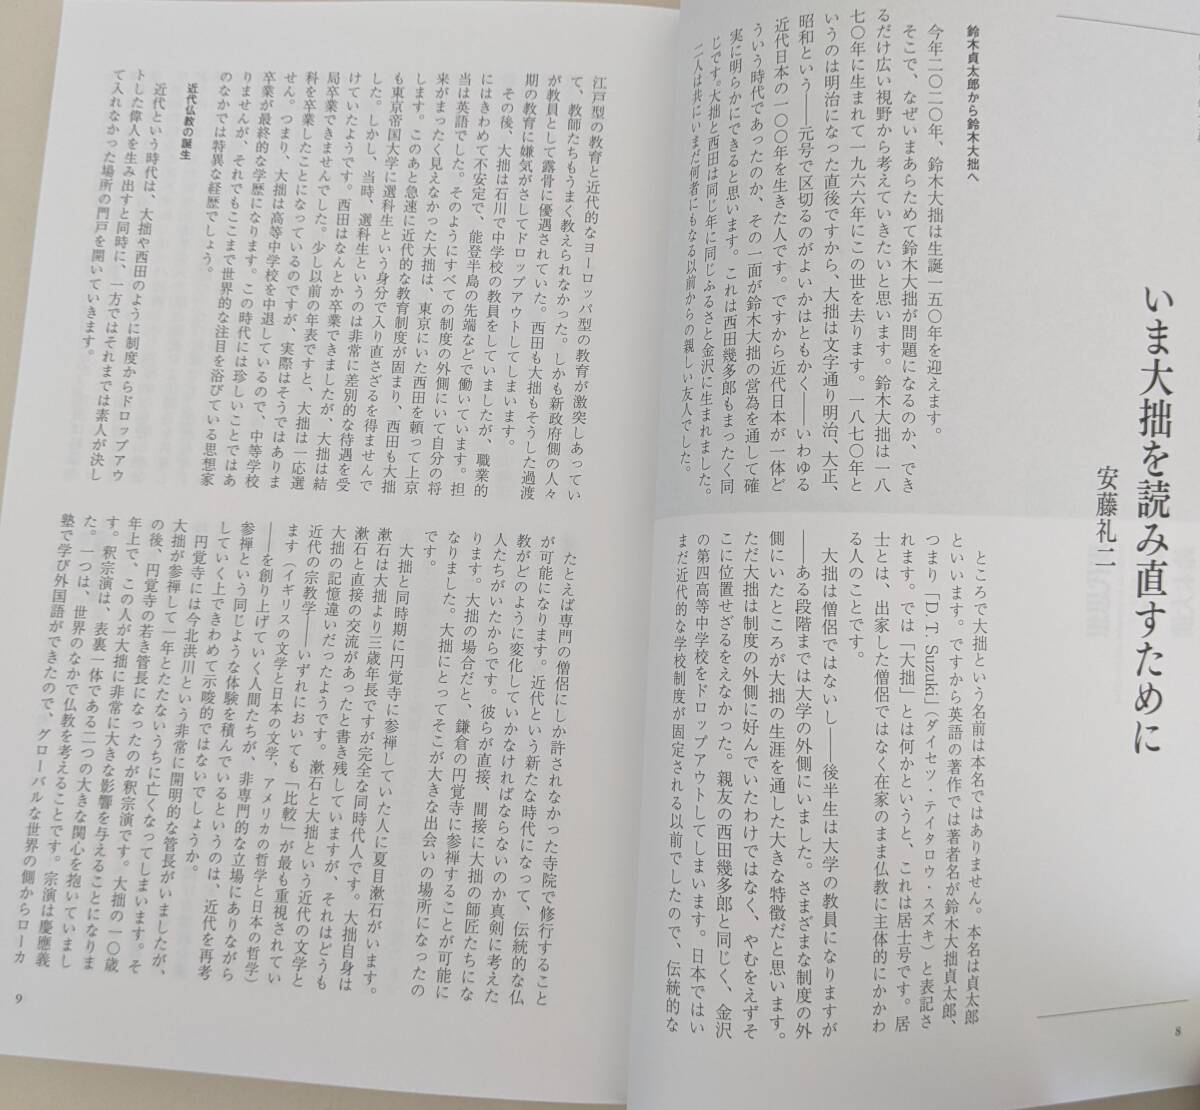 いま大拙を読み直すために
安藤礼二
鈴木貞太郎から鈴木大拙へ
今年二〇二〇年、鈴木大拙は生誕一五〇年を迎えます。
そこで、なぜいまあらためて鈴木大拙が問題になるのか、でき
るだけ広い視野から考えていきたいと思います。鈴木大拙は一八
七〇年に生まれて一九六六年にこの世を去ります。一八七〇年と
いうのは明治になった直後ですから、大拙は文字通り明治、大正、
昭和という――元号で区切るのがよいかはともかく――いわゆる
近代日本の一〇〇年を生きた人です。ですから近代日本が一体ど
ういう時代であったのか、その一面が鈴木大拙の営為を通して確
実に明らかにできると思います。これは西田幾多郎もまったく同
じです。大拙と西田は同じ年に同じふるさと金沢に生まれました。
二人は共にいまだ何者にもなる以前からの親しい友人でした。
ところで大拙という名前は本名ではありません。本名は貞太郎
といいます。ですから英語の著作では著者名が鈴木大拙貞太郎、
つまり「D. T. Suzuki」（ダイセツ・テイタロウ・スズキ）と表記さ
れます。では「大拙」とは何かというと、これは居士号です。居
士とは、出家した僧侶ではなく在家のまま仏教に主体的にかかわ
る人のことです。
大拙は僧侶ではないし――後半生は大学の教員になりますが
――ある段階までは大学の外側にいました。さまざまな制度の外
側にいたところが大拙の生涯を通した大きな特徴だと思います。
ただ大拙は制度の外側に好んでいたわけではなく、やむをえずそ
こに位置せざるをえなかった。親友の西田幾多郎と同じく、金沢
の第四高等中学校をドロップアウトしてしまいます。日本ではい
まだ近代的な学校制度が固定される以前でしたので、伝統的な
8
江戸型の教育と近代的なヨーロッパ型の教育が激突しあってい
て、教師たちもうまく教えられなかった。しかも新政府側の人々
が教員として露骨に優遇されていた。西田も大拙もそうした過渡
期の教育に嫌気がさしてドロップアウトしてしまいます。
その後、大拙は石川で中学校の教員をしていましたが、職業的
にはきわめて不安定で、能登半島の先端などで働いています。担
当は英語でした。そのようにすべての制度の外側にいて自分の将
来がまったく見えなかった大拙は、東京にいた西田を頼って上京
します。このあと急速に近代的な教育制度が固まり、西田も大拙
も東京帝国大学に選科生という身分で入り直さざるを得ませんで
した。しかし、当時、選科生というのは非常に差別的な待遇を受
けていたようです。西田はなんとか卒業できましたが、大拙は結
局卒業できませんでした。少し以前の年表ですと、大拙は一応選
科を卒業したことになっているのですが、実際はそうではありま
せん。つまり、大拙は高等中学校を中退しているので、中等学校
卒業が最終的な学歴になります。この時代には珍しいことではあ
りませんが、それでもここまで世界的な注目を浴びている思想家
のなかでは特異な経歴でしょう。
近代仏教の誕生
近代という時代は、大拙や西田のように制度からドロップアウ
トした偉人を生み出すと同時に、一方ではそれまでは素人が決し
て入れなかった場所の門戸を開いていきます。
たとえば専門の僧侶にしか許されなかった寺院で修行すること
が可能になります。近代という新たな時代になって、伝統的な仏
教がどのように変化していかなければならないのか真剣に考えた
人たちがいたからです。彼らが直接、間接に大拙の師匠たちにな
ります。大拙の場合だと、鎌倉の円覚寺に参禅することが可能に
なりました。大拙にとってそこが大きな出会いの場所になったの
です。
大拙と同時期に円覚寺に参禅していた人に夏目漱石がいます。
漱石は大拙より三歳年長ですが完全な同時代人です。大拙自身は
漱石と直接の交流があったと書き残していますが、それはどうも
大拙の記憶違いだったようです。漱石と大拙という近代の文学と
近代の宗教学――いずれにおいても「比較」が最も重視されてい
ます（イギリスの文学と日本の文学、アメリカの哲学と日本の哲学）
――を創り上げていく人間たちが、非専門的な立場にありながら
参禅という同じような体験を積んでいるというのは、近代を再考
していく上できわめて示唆的ではないでしょうか。
円覚寺には今北洪川という非常に開明的な管長がいましたが、
大拙が参禅して一年とたたないうちに亡くなってしまいます。そ
の後、円覚寺の若き管長になったのが釈宗演です。大拙の一〇歳
年上で、この人が大拙に非常に大きな影響を与えることになりま
す。釈宗演は、表裏一体である二つの大きな関心を抱いていまし
た。一つは、世界のなかで仏教を考えることです。宗演は慶應義
塾で学び外国語ができたので、グローバルな世界の側からローカ
9